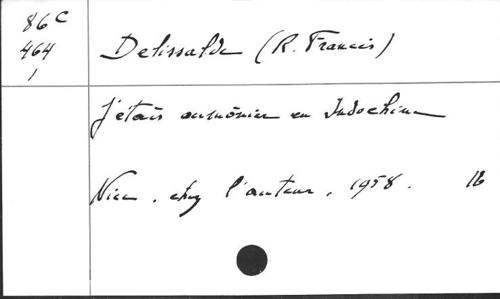 86 C
464
1
Delissalde (R. Francis)
J'étais aumônier en Indochine
Nice, chez l'auteur, 1958. 16